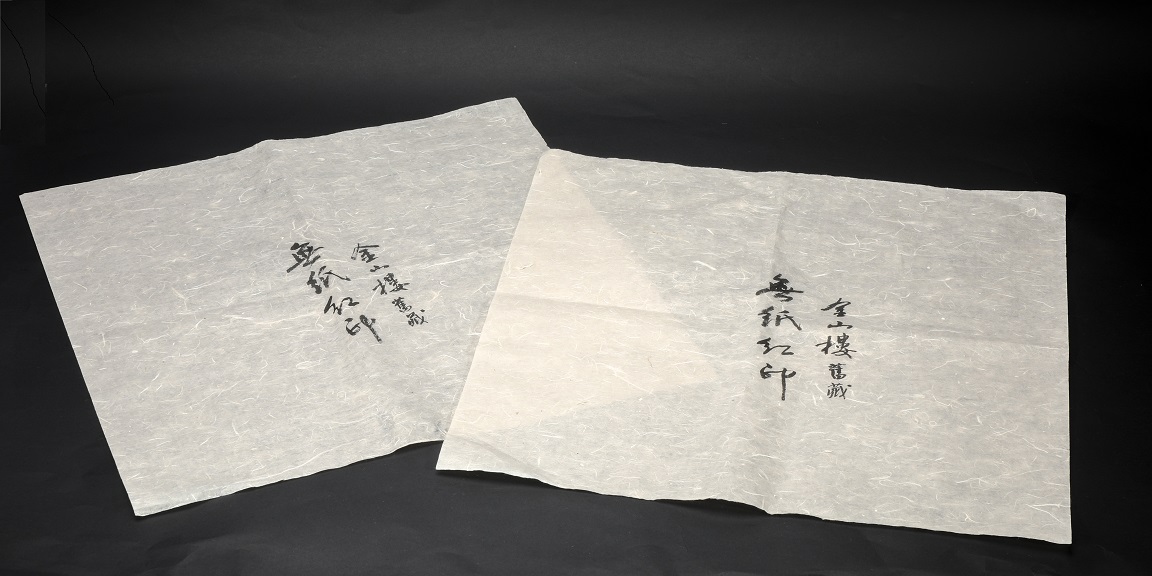 金山樓舊藏
無紙紅印
金山樓舊藏
無紙紅印